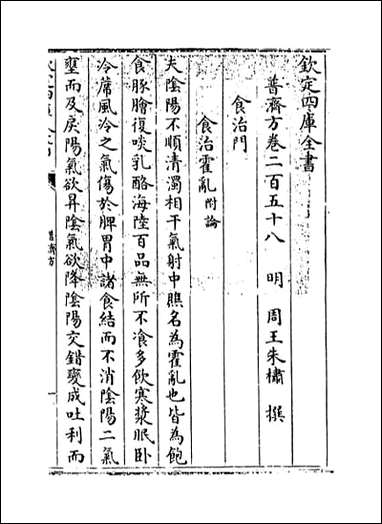 欽定四庫全書
普濟方卷二百五十八 明 周王朱橚 撰
食治門
食治霍亂附論
夫陰陽不順清濁相干氣射中膲名為霍亂也皆為飽
食豚膾復啖乳酪海陸百品無所不飡多飲寒漿眠卧
冷蓆風冷之氣傷於脾胃中諸食結而不消陰陽二氣
壅而及戾陽氣欲昇陰氣欲降陰陽交錯變成吐利而
普濟方